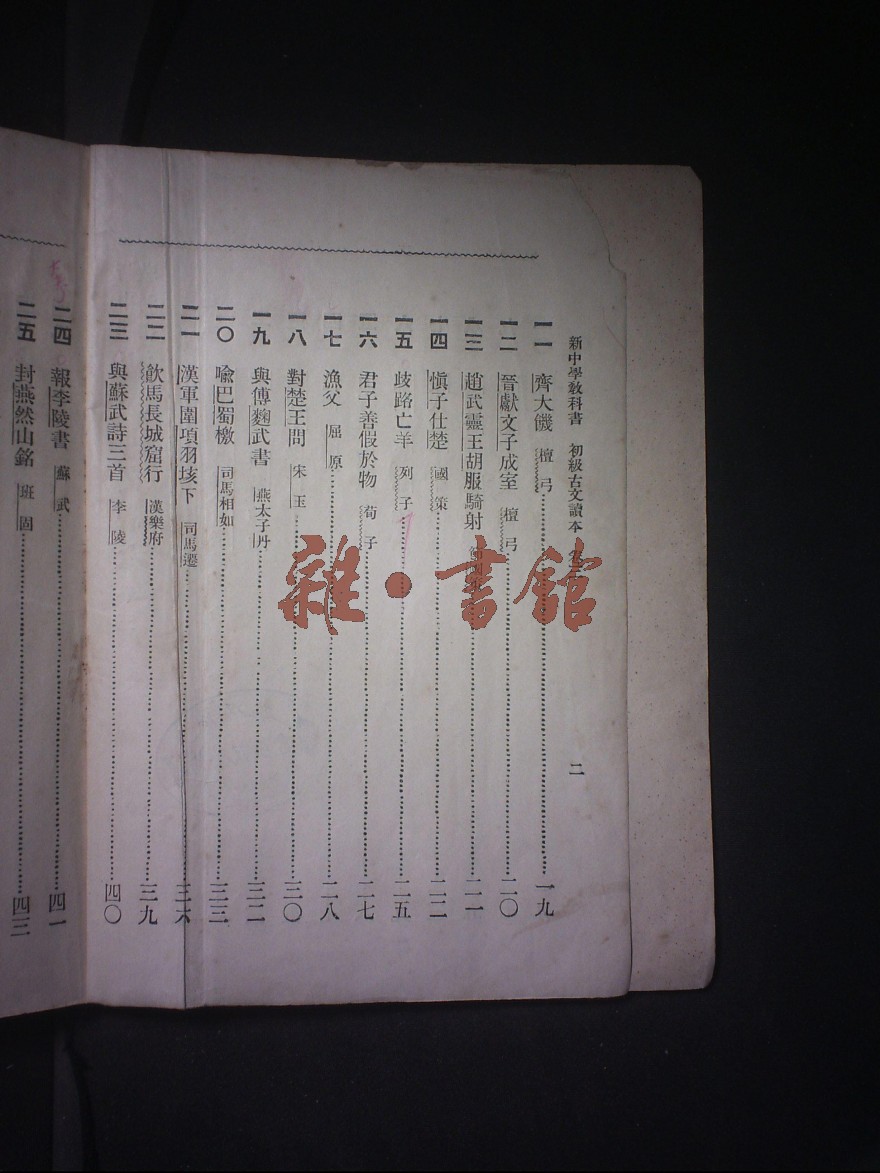 新中學教科書　初級古文讀本　二
一一　齊大饑　檀弓……一九
一二　晉獻文子成室　檀弓……二〇
一三　趙武靈王胡服騎射……二一
一四　愼子仕楚　國策……二二
一五　歧路亡羊　列子……二五
一六　君子善假於物　荀子……二七
一七　漁父　屈原……二八
一八　對楚王問　宋玉……三〇
一九　與傅麴武書　燕太子丹……三二
二〇　喩巴蜀檄　司馬相如……三三
二一　漢軍圍項羽垓下　司馬遷……三六
二二　飲馬長城窟行　漢樂府……三九
二三　與蘇武詩三首　李陵……四〇
二四　報李陵書　蘇武……四一
二五　封燕然山銘　班固……四三
雜·書館